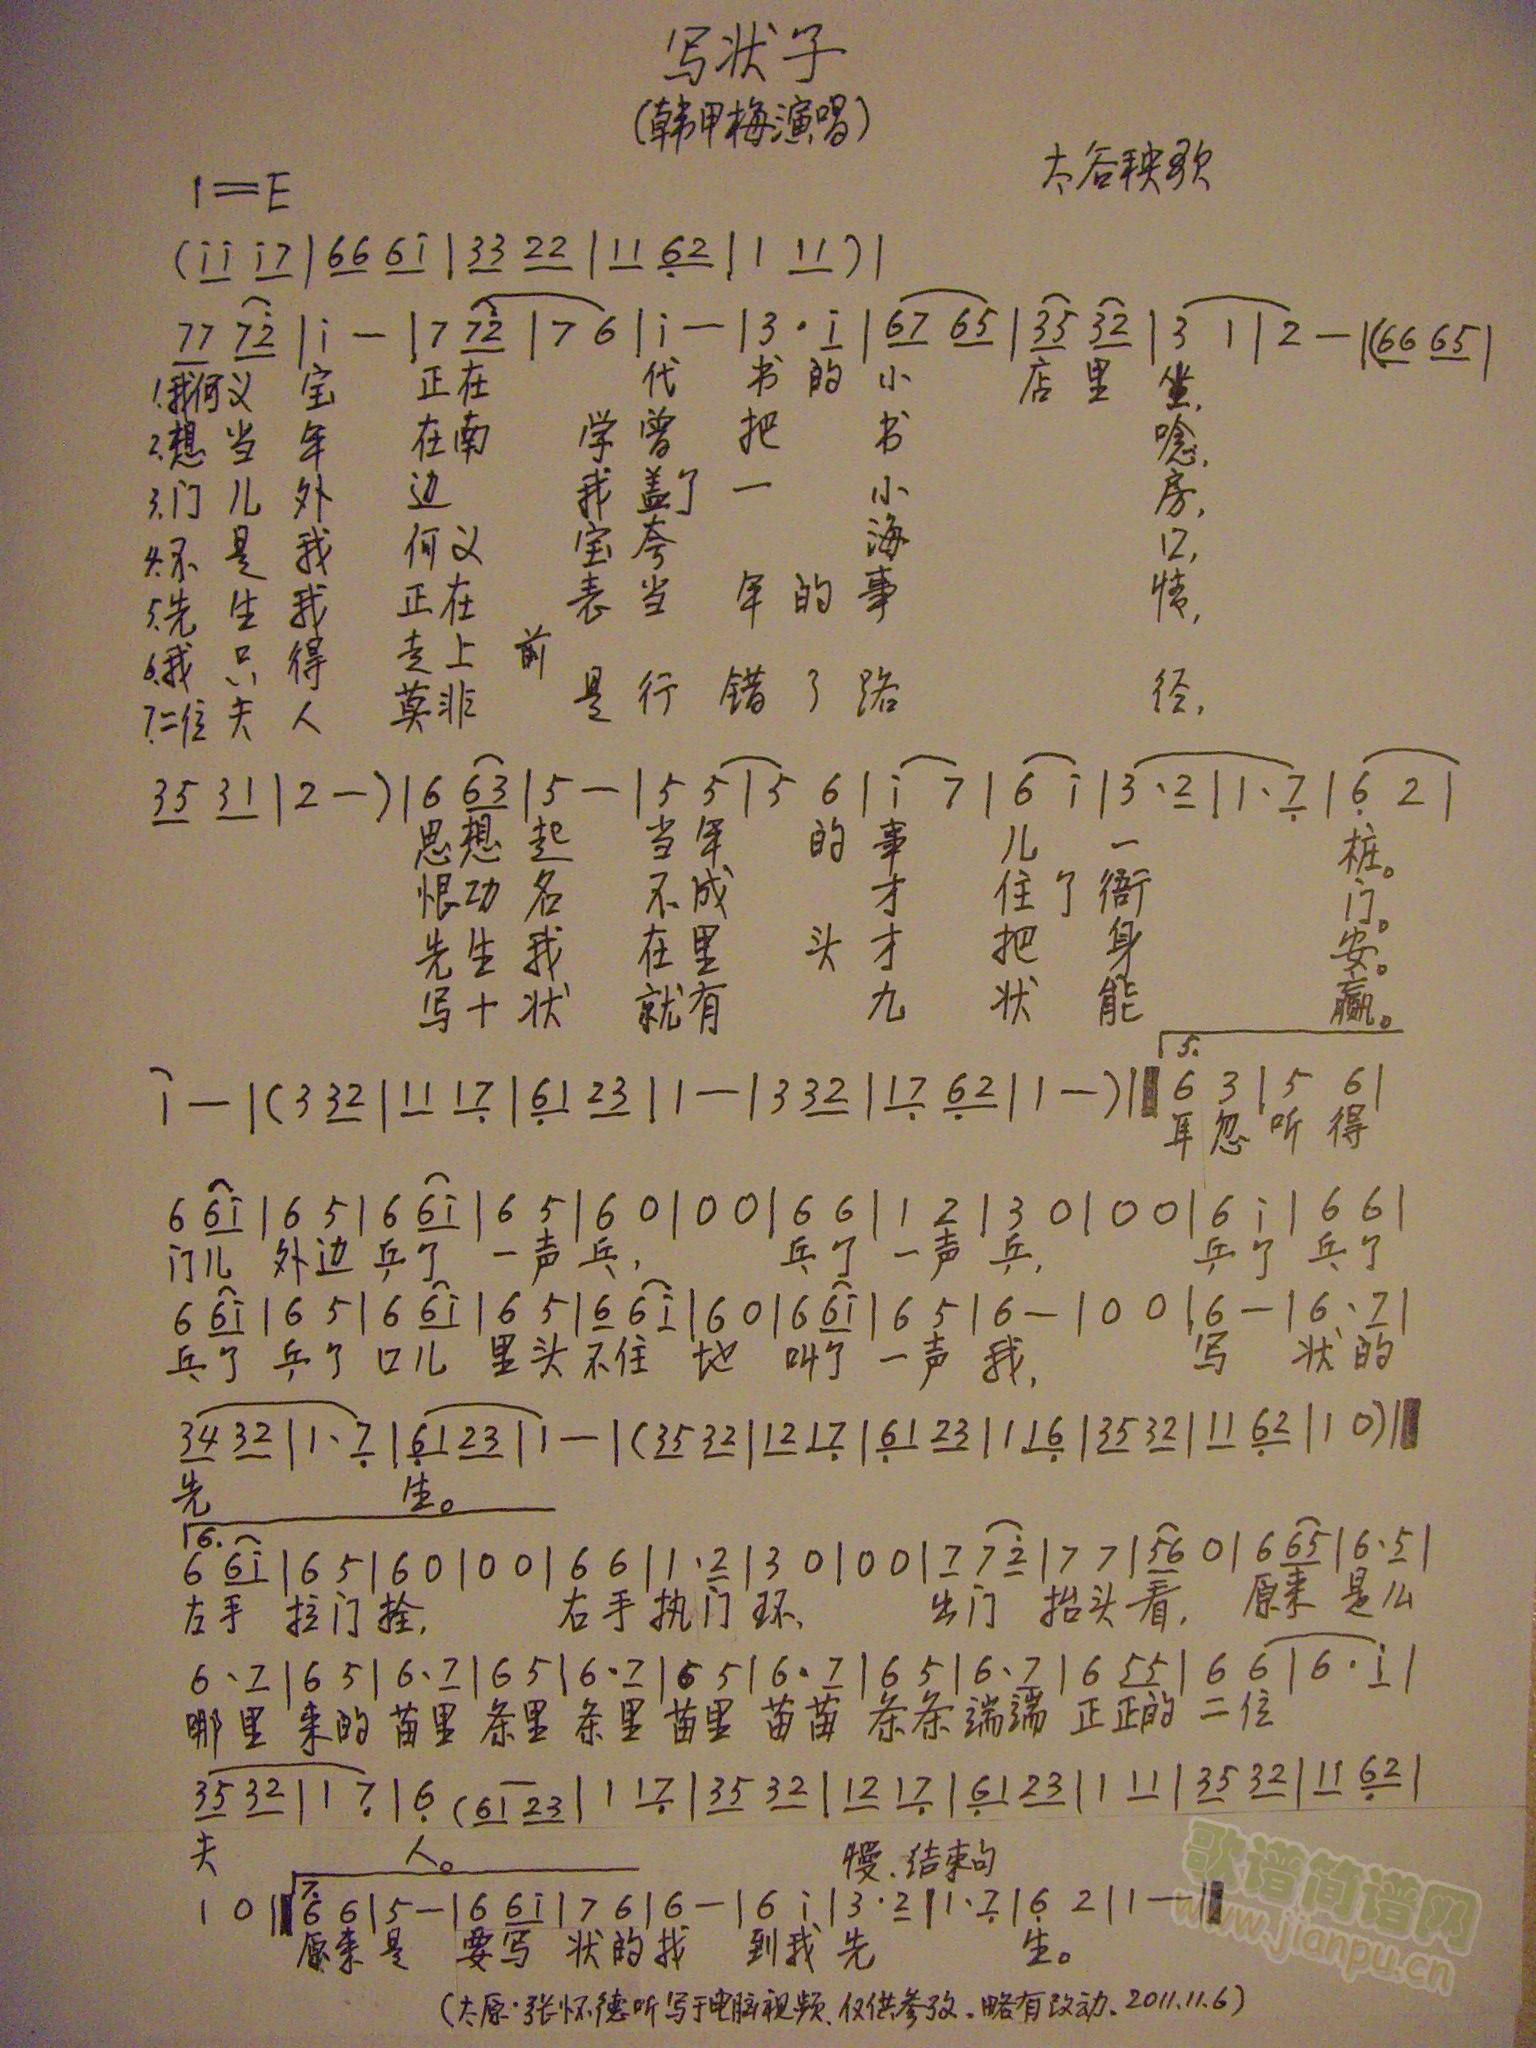 写状子
(韩甲梅演唱)
太谷秧歌
1=E
(i i i 7 | 66 6i | 33 22 | 11 62 | 1 11 ) |
77 7 2 | i — | 7 72 | 7 6 | i — | 3 · i | 67 65 | 35 32 | 3 1 | 2 — | (66 65 |
1.我何义 宝 正在 代 书的小 店里 坐,
2.想当年 在南 学曾 把 书 唸,
3.门儿外 边 我盖了一 小 房,
4.不是我 何义 宝夸 海 口,
5.先生我 正在 表当 年的事 情,
6.我只得 走上 前
7.二位夫人 莫非 是行 错了路 径,
35 31 | 2 — ) | 6 63 | 5 — | 5 5 | 5 6 | i 7 | 6 i | 3 · 2 | 1 · 7 | 6 2 |
思想起 当年 的事 儿 一 桩。
恨功名 不成 才 住了衙 门。
先生我 在里 头才 把 身 安。
写十状 就有 九 状 能 赢。
5.
i — | ( 3 32 | 11 17 | 61 23 | 1 — | 3 32 | 17 62 | 1 — ) | 6 3 | 5 6 |
耳忽听得
6 6i | 6 5 | 6 6i | 6 5 | 6 0 | 0 0 | 6 6 | 1 2 | 3 0 | 0 0 | 6 i | 6 6 |
门儿 外边 乒了 一声 乒, 乒了 一声 乒, 乒了 乒了
6 6i | 6 5 | 6 6i | 6 5 | 6 6i | 6 0 | 6 6i | 6 5 | 6 — | 0 0 | 6 — | 6 · 7 |
乒了 乒了 口儿 里头 不住 地 叫了 一声 我, 写 状的
34 32 | 1 · 7 | 61 23 | 1 — | ( 35 32 | 12 17 | 61 23 | 1 16 | 35 32 | 11 62 | 1 0 ) |
先 生。
6.
6 6i | 6 5 | 6 0 | 0 0 | 6 6 | 1 · 2 | 3 0 | 0 0 | 7 7 2 | 7 7 | 56 0 | 6 65 | 6 · 5 |
左手 拉门 拴, 右手 执门 环, 出门 抬头 看, 原来 是么
6 · 7 | 6 5 | 6 · 7 | 6 5 | 6 · 7 | 6 5 | 6 · 7 | 6 5 | 6 · 7 | 6 55 | 6 6 | 6 · i |
哪里 来的 苗里 条里 条里 苗里 苗苗 条条 端端 正正的 二位
35 32 | 1 7 | 6 (61 23 | 1 17 | 35 32 | 12 17 | 61 23 | 1 11 | 35 32 | 11 62 |
夫 人。
慢、结束句
7.
1 0 | 6 6 | 5 — | 6 6i | 7 6 | 6 — | 6 i | 3 · 2 | 1 · 7 | 6 2 | 1 — |
原来 是 要写 状的 找 到我 先 生。
(太原·张怀德听写于电脑视频、仅供参考。略有改动、2011.11.6)
歌谱简谱网
www.jianpu.cn